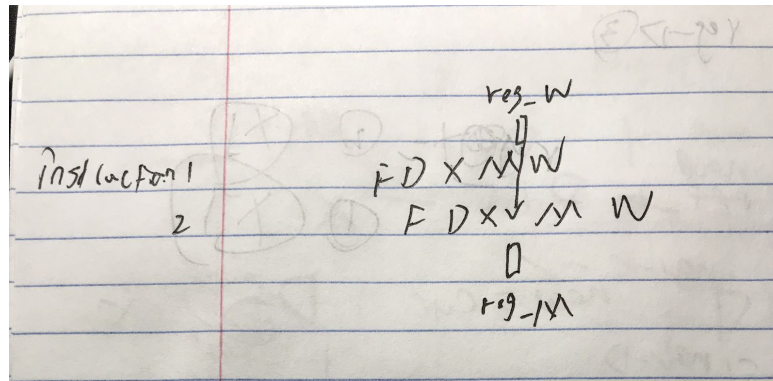 reg_W
instruction 1 F D X M W
2 F D X M W
reg_M